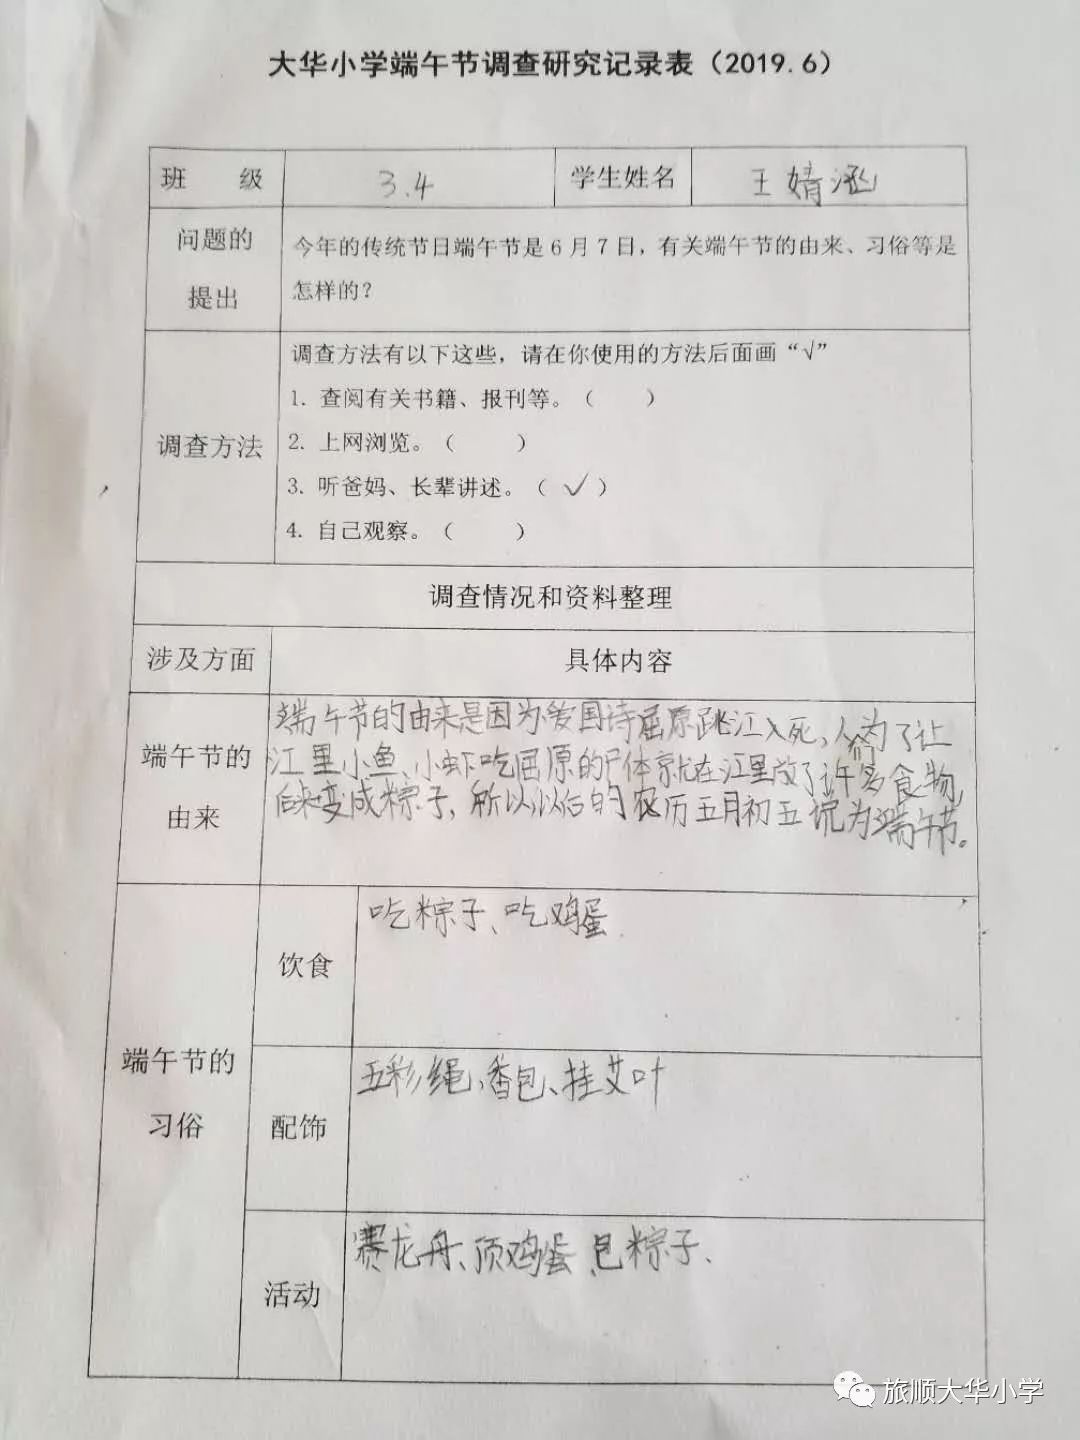 大华小学端午节调查研究记录表（2019.6）
班 级 3.4 学生姓名 王婧涵
问题的
提出
今年的传统节日端午节是6月7日，有关端午节的由来、习俗等是
怎样的？
调查方法
调查方法有以下这些，请在你使用的方法后面画“√”
1. 查阅有关书籍、报刊等。（ ）
2. 上网浏览。（ ）
3. 听爸妈、长辈讲述。（√）
4. 自己观察。（ ）
调查情况和资料整理
涉及方面 具体内容
端午节的
由来
端午节的由来是因为爱国诗屈原跳江入死，人们为了让
江里小鱼、小虾吃屈原的尸体京就在江里放了许多食物，
后来变成粽子，所以以后的农历五月初五说为端午节。
端午节的
习俗
饮食
吃粽子、吃鸡蛋
配饰
五彩绳、香包、挂艾叶
活动
赛龙舟、顶鸡蛋、包粽子、
旅顺大华小学